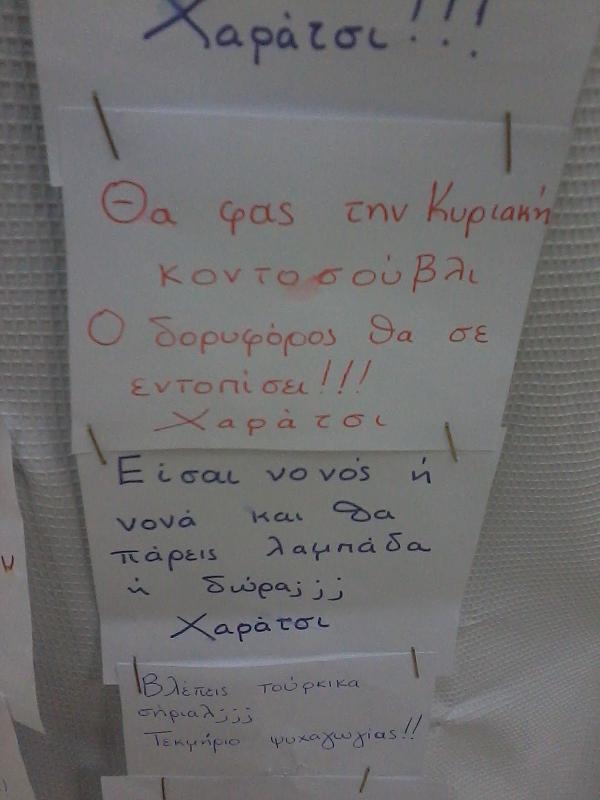 Χαράτσι!!!
Θα φας την Κυριακή
κοντοσούβλι
Ο δορυφόρος θα σε
εντοπίσει!!!
Χαράτσι
Είσαι νονός ή
νονά και θα
πάρεις λαμπάδα
ή δώρα;;;
Χαράτσι
Βλέπεις τούρκικα
σήριαλ;;;
Τεκμήριο ψυχαγωγίας!!